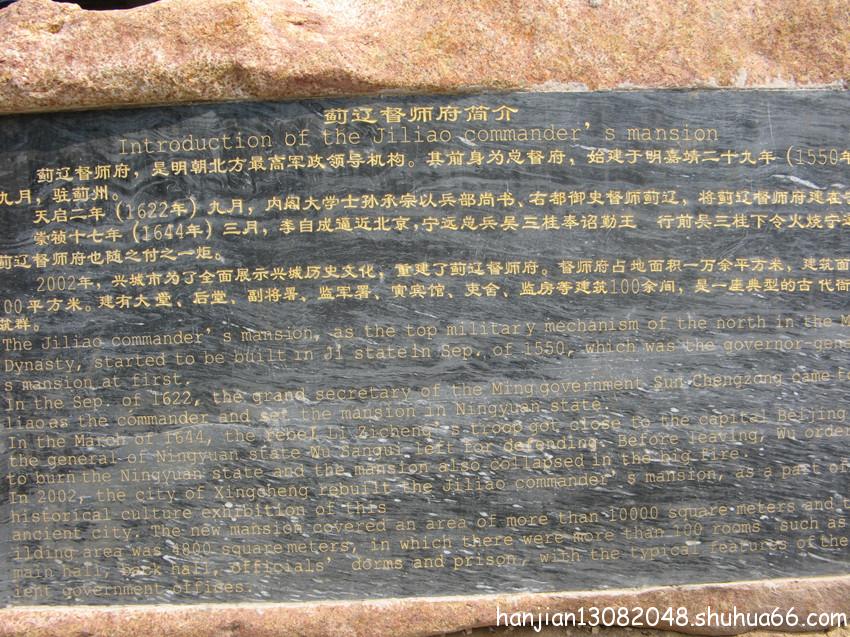 蓟辽督师府简介
Introduction of the Jiliao commander's mansion
蓟辽督师府，是明朝北方最高军政领导机构。其前身为总督府，始建于明嘉靖二十九年（1550年
九月，驻蓟州。
天启二年（1622年）九月，内阁大学士孙承宗以兵部尚书、右都御史督师蓟辽，将蓟辽督师府建在
崇祯十七年（1644年）三月，李自成逼近北京，宁远总兵吴三桂奉诏勤王 行前吴三桂下令火烧宁远
蓟辽督师府也随之付之一炬。
2002年，兴城市为了全面展示兴城历史文化，重建了蓟辽督师府。督师府占地面积一万余平方米，建筑面
00平方米。建有大堂、后堂、副将署、监军署、寅宾馆、吏舍、监房等建筑100余间，是一座典型的古代衙
筑群。
The Jiliao commander's mansion, as the top military mechanism of the north in the M
Dynasty, started to be built in Ji state in Sep. of 1550, which was the governor-gene
s mansion at first.
In the Sep. of 1622, the grand secretary of the Ming government Sun Chengzong came to
liao as the commander and set the mansion in Ningyuan state.
In the March of 1644, the rebel Li Zicheng's troop got close to the capital Beijing
the general of Ningyuan state Wu Sangui left for defending. Before leaving, Wu orde
to burn the Ningyuan state and the mansion also collapsed in the big fire.
In 2002, the city of Xingcheng rebuilt the Jiliao commander's mansion, as a part of
historical culture exhibition of this
ancient city. The new mansion covered an area of more than 10000 square meters and t
ilding area was 4800 square meters, in which there were more than 100 rooms such as
main hall, back hall, officials' dorms and prison, with the typical features of the
ient government offices.
hanjian13082048.shuhua66.com